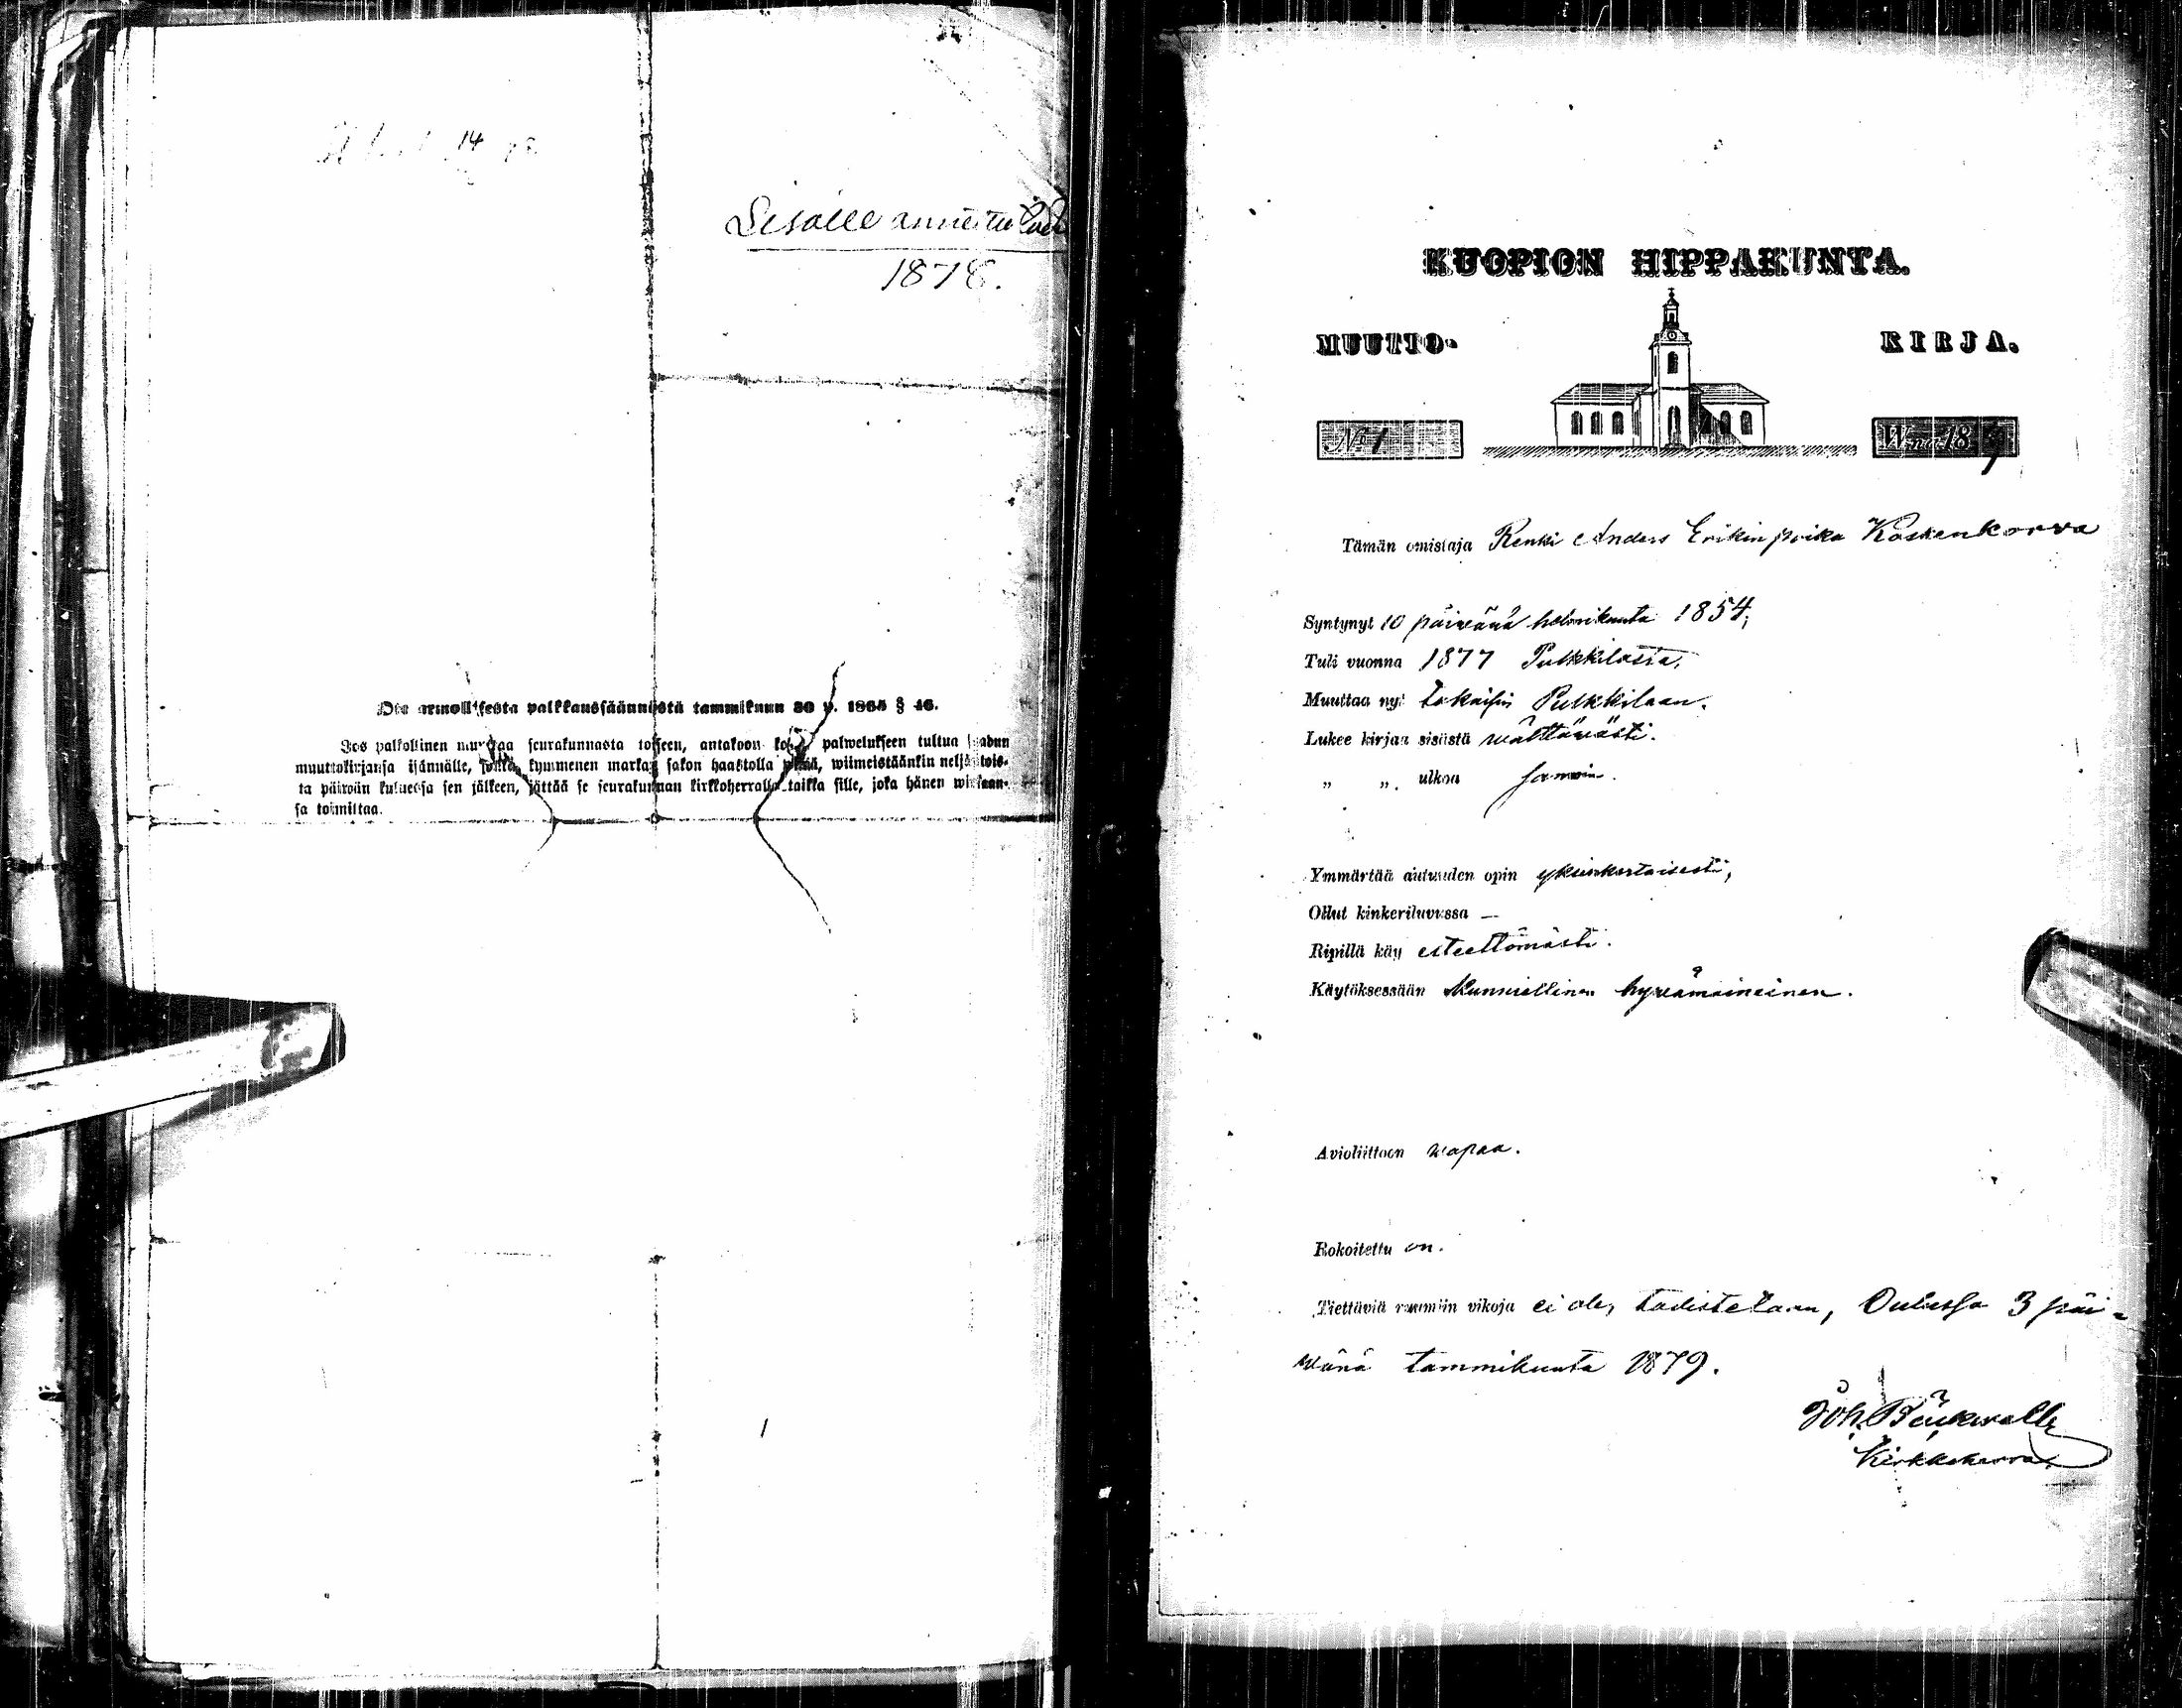 14
Sisälle annettu
1878.
Ote armollisesta palkkaussäännöstä tammikuun 30 p. 1865 § 46.
Jos palkollinen muuttaa seurakunnasta toiseen, antakoon kohta palwelukseen tultua saadun
muuttokirjansa isännälle, jonka kymmenen markan sakon haastolla pitää, wiimeistäänkin neljäntois-
ta päiwän kuluessa sen jälkeen, jättää se seurakunnan kirkkoherralle taikka sille, joka hänen wirkaan-
sa toimittaa.
KUOPION HIPPAKUNTA.
MUUTTO- KIRJA.
No 1 W:na 1879
Tämän omistaja Renki Anders Erikin poika Koskenkorva
Syntynyt 10 päiwänä helmikuuta 1854;
Tuli vuonna 1877 Pulkkilasta.
Muuttaa nyt takaisin Pulkkilaan.
Lukee kirjaa sisästä wälttäwästi.
„ „ ulkoa samoin.
Ymmärtää autuuden opin yksinkertaisesti;
Ollut kinkeriluvussa —
Ripillä käy esteettömästi.
Käytöksessään kunniallinen hywämaineinen.
Avioliittoon wapaa.
Rokoitettu on.
Tiettäviä ruumiin vikoja ei ole, todistetaan, Oulussa 3 päi-
wänä tammikuuta 1879.
Joh.
Kirkkoherra